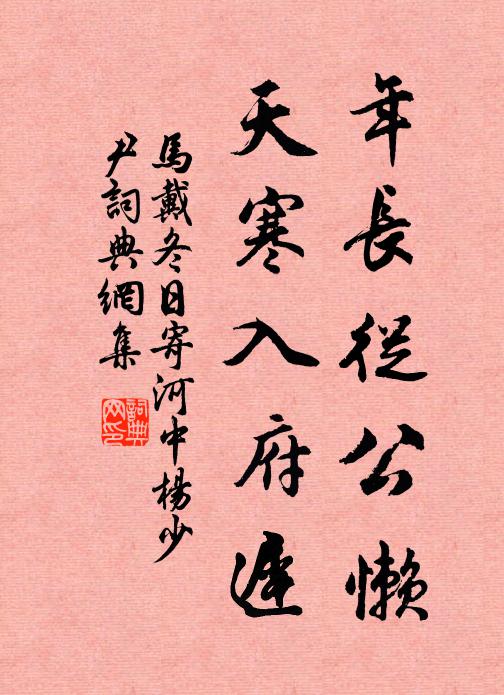 年長從公懶
天寒入府遲
馬戴冬日寄河中楊少
尹詞典網集
詞典
网印